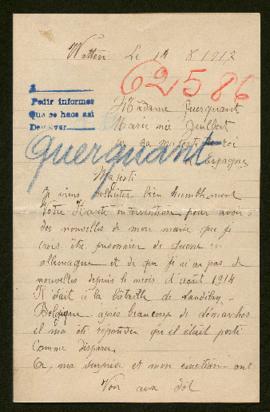 Watten Le 14 8 1917
62586
A
Pedir informes
Que se hace asi
Madame Querquant
Marie née
Sa majesté roi
Espagne
Querquant
Majesté
Je viens solliciter bien humblement
Votre Haute intervention pour avoir
des nouvelles de mon mari que je
crois être prisonnier de guerre en
allemagne et de que je n'ai pas de
nouvelles depuis le mois d'août 1914
Il était à la bataille de
Belgique après beaucoup de démarches
il m'a été répondu que il était porté
comme disparu.
ma surprise et mon émotion ont